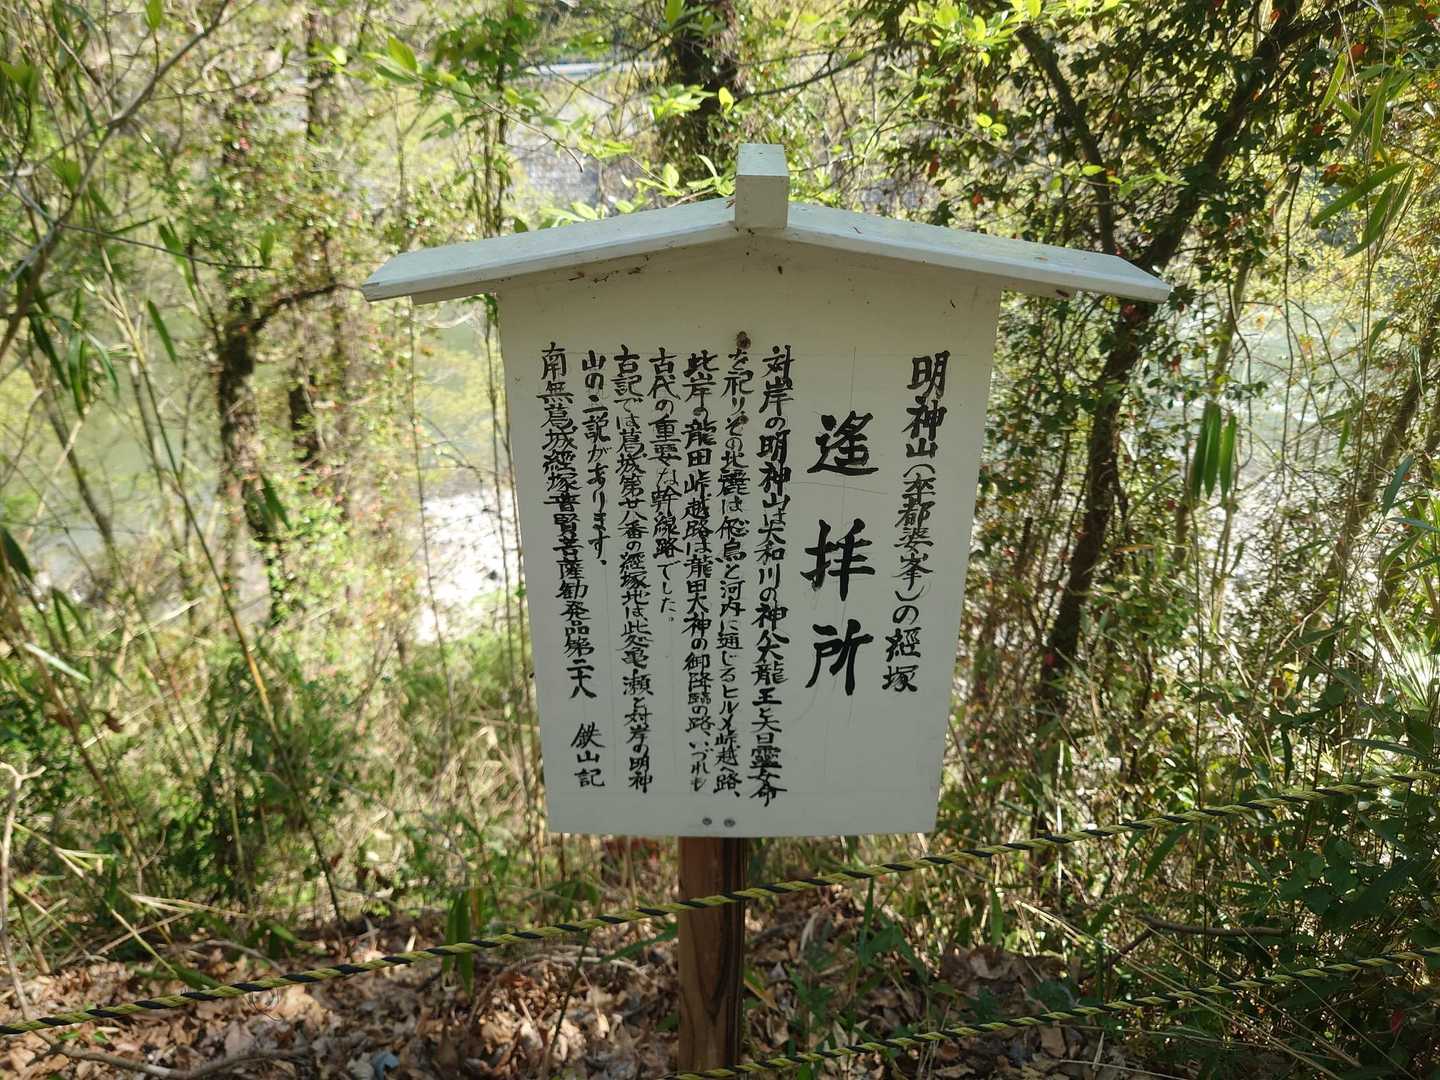 明神山(卒都婆峯)の經塚
遥拝所
対岸の明神山は大和川の神公大龍王と天旦靈女命
を祀りその北麗は飛鳥と河内に通じるヒルメ峠越へ路、
此岸の龍田峠越路は龍田大神の御降臨の路、いづれも
古代の重要な幹線路でした。
古記では葛城第廿八番の經塚地は此亀ヶ瀬と対岸の明神
山の二説があります、
南無葛城經塚普賢菩薩勧発品第二十八 鉄山記